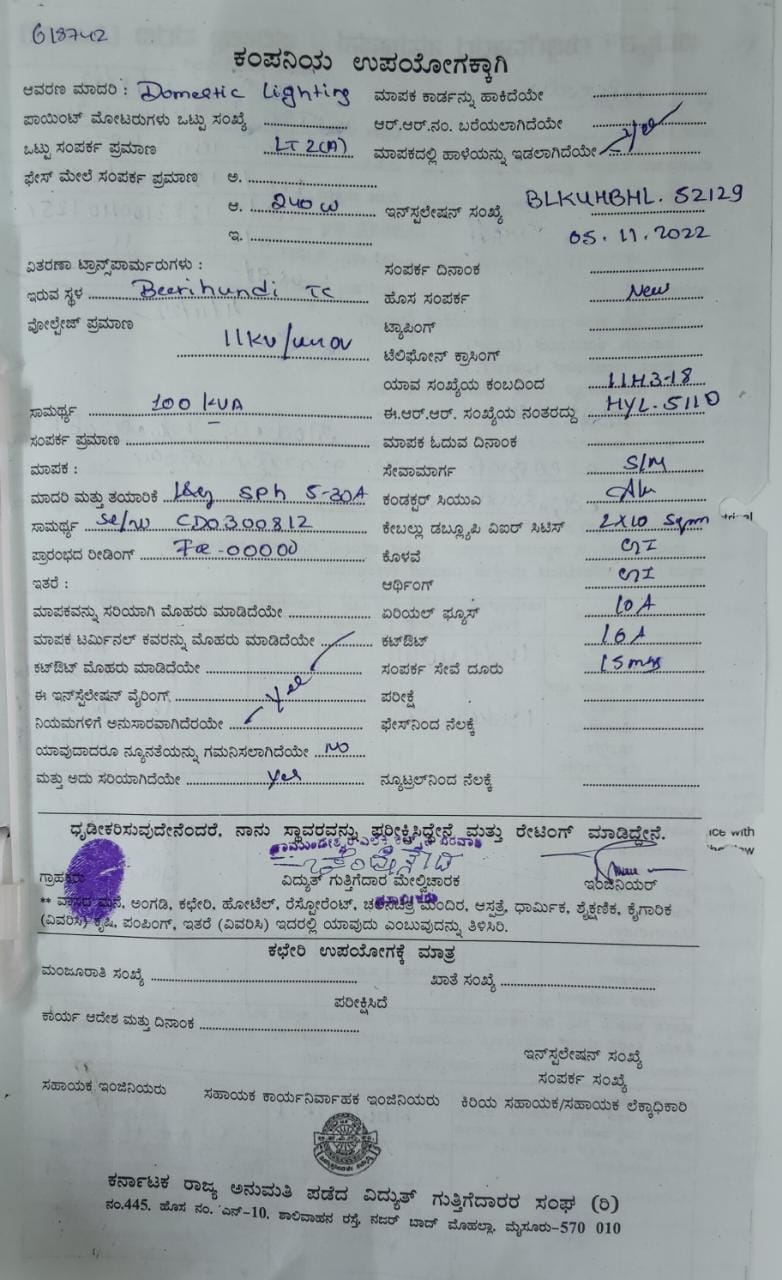 618742
ಕಂಪನಿಯ ಉಪಯೋಗಕ್ಕಾಗಿ
ಆವರಣ ಮಾದರಿ : Domestic Lighting ಮಾಪಕ ಕಾರ್ಡನ್ನು ಹಾಕಿದೆಯೇ
ಪಾಯಿಂಟ್ ಮೋಟರುಗಳು ಒಟ್ಟು ಸಂಖ್ಯೆ ಆರ್.ಆರ್.ನಂ. ಬರೆಯಲಾಗಿದೆಯೇ
ಒಟ್ಟು ಸಂಪರ್ಕ ಪ್ರಮಾಣ LT 2(A) ಮಾಪಕದಲ್ಲಿ ಹಾಳೆಯನ್ನು ಇಡಲಾಗಿದೆಯೇ Yes
ಫೇಸ್ ಮೇಲೆ ಸಂಪರ್ಕ ಪ್ರಮಾಣ ಅ.
ಆ. 240 W ಇನ್‌ಸ್ಟಲೇಷನ್ ಸಂಖ್ಯೆ BLKUHBHL. 52129
ಇ. 05.11.2022
ವಿತರಣಾ ಟ್ರಾನ್ಸ್‌ಪಾರ್ಮರುಗಳು : ಸಂಪರ್ಕ ದಿನಾಂಕ
ಇರುವ ಸ್ಥಳ Beerihundi TC ಹೊಸ ಸಂಪರ್ಕ New
ವೋಲ್ಟೇಜ್ ಪ್ರಮಾಣ ಟ್ಯಾಪಿಂಗ್
11KV/ ಟೆಲಿಫೋನ್ ಕ್ರಾಸಿಂಗ್
ಯಾವ ಸಂಖ್ಯೆಯ ಕಂಬದಿಂದ 11H3-18
ಸಾಮರ್ಥ್ಯ 100 KVA ಈ.ಆರ್.ಆರ್. ಸಂಖ್ಯೆಯ ನಂತರದ್ದು HYL.5110
ಸಂಪರ್ಕ ಪ್ರಮಾಣ ಮಾಪಕ ಓದುವ ದಿನಾಂಕ
ಮಾಪಕ : ಸೇವಾಮಾರ್ಗ S/M
ಮಾದರಿ ಮತ್ತು ತಯಾರಿಕೆ L&G SPh 5-30A ಕಂಡಕ್ಟರ್ ಸಿಯುವಿ
ಸಾಮರ್ಥ್ಯ CD0300812 ಕೇಬಲ್ಲು ಡಬ್ಲ್ಯೂಪಿ ವಿಐರ್ ಸಿಟಿಸ್ 2X10 Sqmm
ಪ್ರಾರಂಭದ ರೀಡಿಂಗ್ 00000 ಕೊಳವೆ GI
ಇತರೆ : ಆರ್ಥಿಂಗ್ GI
ಮಾಪಕವನ್ನು ಸರಿಯಾಗಿ ಮೊಹರು ಮಾಡಿದೆಯೇ ಏರಿಯಲ್ ಫ್ಯೂಸ್ 10A
ಮಾಪಕ ಟರ್ಮಿನಲ್ ಕವರನ್ನು ಮೊಹರು ಮಾಡಿದೆಯೇ ಕಟ್‌ಔಟ್ 16A
ಕಟ್‌ಔಟ್ ಮೊಹರು ಮಾಡಿದೆಯೇ ಸಂಪರ್ಕ ಸೇವೆ ದೂರು
ಈ ಇನ್‌ಸ್ಟಲೇಷನ್ ವೈರಿಂಗ್ Yes ಪರೀಕ್ಷೆ
ನಿಯಮಗಳಿಗೆ ಅನುಸಾರವಾಗಿದೆರಯೇ ಫೇಸ್‌ನಿಂದ ನೆಲಕ್ಕೆ
ಯಾವುದಾದರೂ ನ್ಯೂನತೆಯನ್ನು ಗಮನಿಸಲಾಗಿದೆಯೇ NO
ಮತ್ತು ಅದು ಸರಿಯಾಗಿದೆಯೇ Yes ನ್ಯೂಟ್ರಲ್‌ನಿಂದ ನೆಲಕ್ಕೆ
ಧೃಡೀಕರಿಸುವುದೇನೆಂದರೆ, ನಾನು ಸ್ಥಾವರವನ್ನು ಪರೀಕ್ಷಿಸಿದ್ದೇನೆ ಮತ್ತು ರೇಟಿಂಗ್ ಮಾಡಿದ್ದೇನೆ.
ಗ್ರಾಹಕರು ವಿದ್ಯುತ್ ಗುತ್ತಿಗೆದಾರ ಮೇಲ್ವಿಚಾರಕ ಇಂಜಿನಿಯರ್
** ವಾಸದ ಮನೆ, ಅಂಗಡಿ, ಕಛೇರಿ, ಹೋಟೆಲ್, ರೆಸ್ಟೋರೆಂಟ್, ಚಲನಚಿತ್ರ ಮಂದಿರ, ಆಸ್ಪತ್ರೆ, ಧಾರ್ಮಿಕ, ಶೈಕ್ಷಣಿಕ, ಕೈಗಾರಿಕ
(ವಿವರಿಸಿ) ಕೃಷಿ, ಪಂಪಿಂಗ್, ಇತರೆ (ವಿವರಿಸಿ) ಇದರಲ್ಲಿ ಯಾವುದು ಎಂಬುವುದನ್ನು ತಿಳಿಸಿರಿ.
ಕಛೇರಿ ಉಪಯೋಗಕ್ಕೆ ಮಾತ್ರ
ಮಂಜೂರಾತಿ ಸಂಖ್ಯೆ ಖಾತೆ ಸಂಖ್ಯೆ
ಪರೀಕ್ಷಿಸಿದೆ
ಕಾರ್ಯ ಆದೇಶ ಮತ್ತು ದಿನಾಂಕ
ಇನ್‌ಸ್ಟಲೇಷನ್ ಸಂಖ್ಯೆ
ಸಂಪರ್ಕ ಸಂಖ್ಯೆ
ಸಹಾಯಕ ಇಂಜಿನಿಯರು ಸಹಾಯಕ ಕಾರ್ಯನಿರ್ವಾಹಕ ಇಂಜಿನಿಯರು ಕಿರಿಯ ಸಹಾಯಕ/ಸಹಾಯಕ ಲೆಕ್ಕಾಧಿಕಾರಿ
ಕರ್ನಾಟಕ ರಾಜ್ಯ ಅನುಮತಿ ಪಡೆದ ವಿದ್ಯುತ್ ಗುತ್ತಿಗೆದಾರರ ಸಂಘ (ರಿ)
ನಂ.445, ಹೊಸ ನಂ. ಎನ್-10, ಶಾಲಿವಾಹನ ರಸ್ತೆ, ನಜರ್ ಬಾದ್ ಮೊಹಲ್ಲಾ, ಮೈಸೂರು-570 010